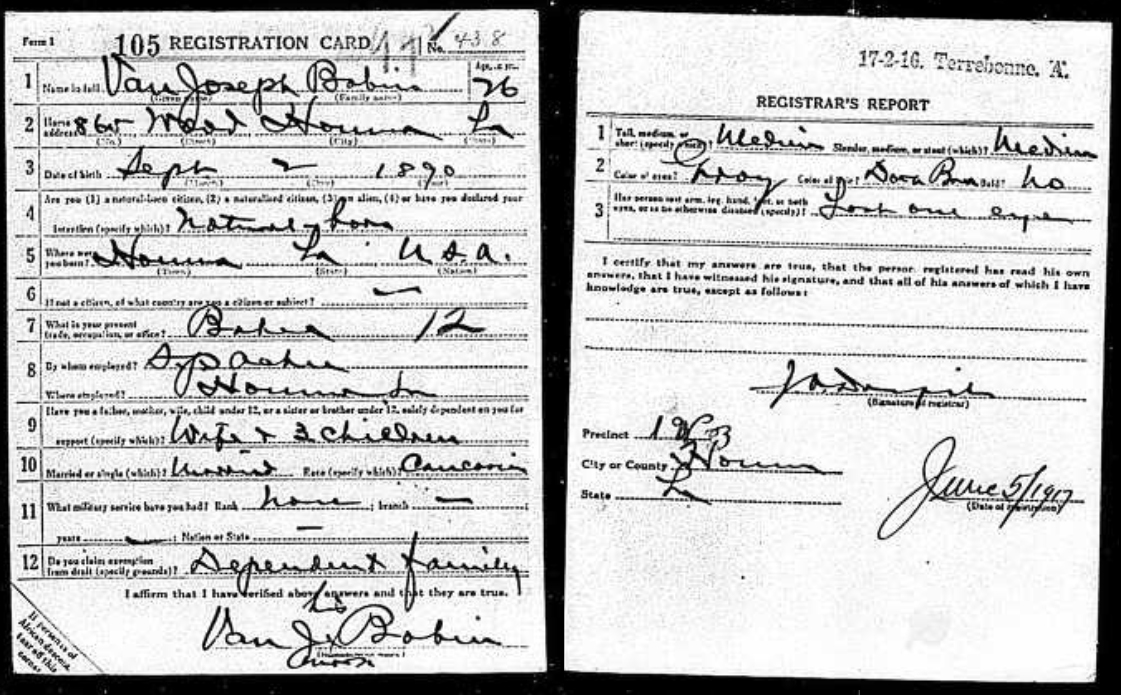 Form 1 105 REGISTRATION CARD No. 438
1 Name in full Van Joseph Babin Age, in yrs. 26
(Given name) (Family name)
2 Home address West Houma La
(No.) (Street) (City) (State)
3 Date of birth Sept 2 1890
(Month) (Day) (Year)
4 Are you (1) a natural-born citizen, (2) a naturalized citizen, (3) an alien, (4) or have you declared your
intention (specify which)? Natural-born
5 Where were you born? Houma La U.S.A.
(Town) (State) (Nation)
6 If not a citizen, of what country are you a citizen or subject? —
7 What is your present trade, occupation, or office? Baker 12
8 By whom employed?
Where employed? Houma La
9 Have you a father, mother, wife, child under 12, or a sister or brother under 12, solely dependent on you for
support (specify which)? Wife + 3 children
10 Married or single (which)? Married Race (specify which)? Caucasian
11 What military service have you had? Rank none ; branch —
years — ; Nation or State —
12 Do you claim exemption from draft (specify grounds)? Dependent family
I affirm that I have verified above answers and that they are true.
his
Van J. Babin
mark
If person is of African descent, tear off this corner
17-2-16. Terrebonne. 'A'.
REGISTRAR'S REPORT
1 Tall, medium, or short (specify which)? Medium Slender, medium, or stout (which)? Medium
2 Color of eyes? Gray Color of hair? Bald? No
3 Has person lost arm, leg, hand, foot, or both eyes, or is he otherwise disabled (specify)? Lost one eye
I certify that my answers are true, that the person registered has read his own
answers, that I have witnessed his signature, and that all of his answers of which I have
knowledge are true, except as follows:
(Signature of registrar)
Precinct
City or County Houma
State La
June 5/1917
(Date of registration)